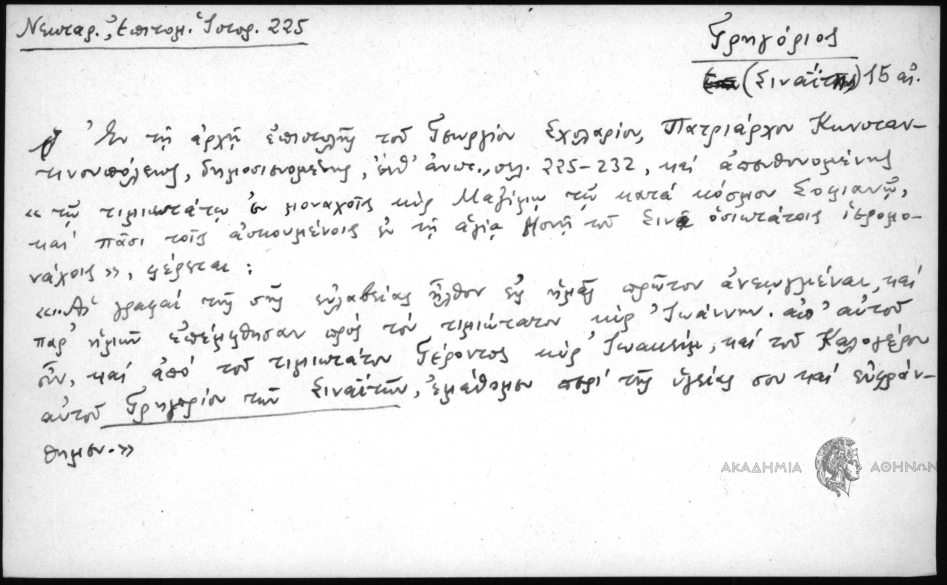 Νεκταρ. Ἐπιτομ. Ἱστορ. 225
Γρηγόριος
(Σιναΐτης) 15 αἰ.
Ἐν τῇ ἀρχῇ ἐπιστολῆς τοῦ Γεωργίου Σχολαρίου, Πατριάρχου Κωνσταν-
τινουπόλεως, δημοσιευομένης, ἐνθ' ἀνωτ., σελ. 225-232, καὶ ἀπευθυνομένης
«τῷ τιμιωτάτῳ ἐν μοναχοῖς κὺρ Μαξίμῳ τῷ κατὰ κόσμον Σοφιανῷ,
καὶ πᾶσι τοῖς ἀσκουμένοις ἐν τῇ ἁγίᾳ Μονῇ τοῦ Σινᾶ ὁσιωτάτοις ἱερομο-
νάχοις», φέρεται:
«Αἱ γραφαὶ τῆς σῆς εὐλαβείας ἦλθον εἰς ἡμᾶς πρῶτον ἀνεῳγμέναι, καὶ
παρ' ἡμῶν ἐπέμφθησαν πρὸς τὸν τιμιώτατον κὺρ Ἰωάννην. ἀπ' αὐτοῦ
οὖν, καὶ ἀπὸ τοῦ τιμιωτάτου Γέροντος κὺρ Ἰωακεὶμ, καὶ τοῦ Καλογέρου
αὐτοῦ Γρηγορίου τῶν Σιναϊτῶν, ἐμάθομεν περὶ τῆς ὑγείας σου καὶ εὐφράν-
θημεν.»
ΑΚΑΔΗΜΙΑ ΑΘΗΝΩΝ